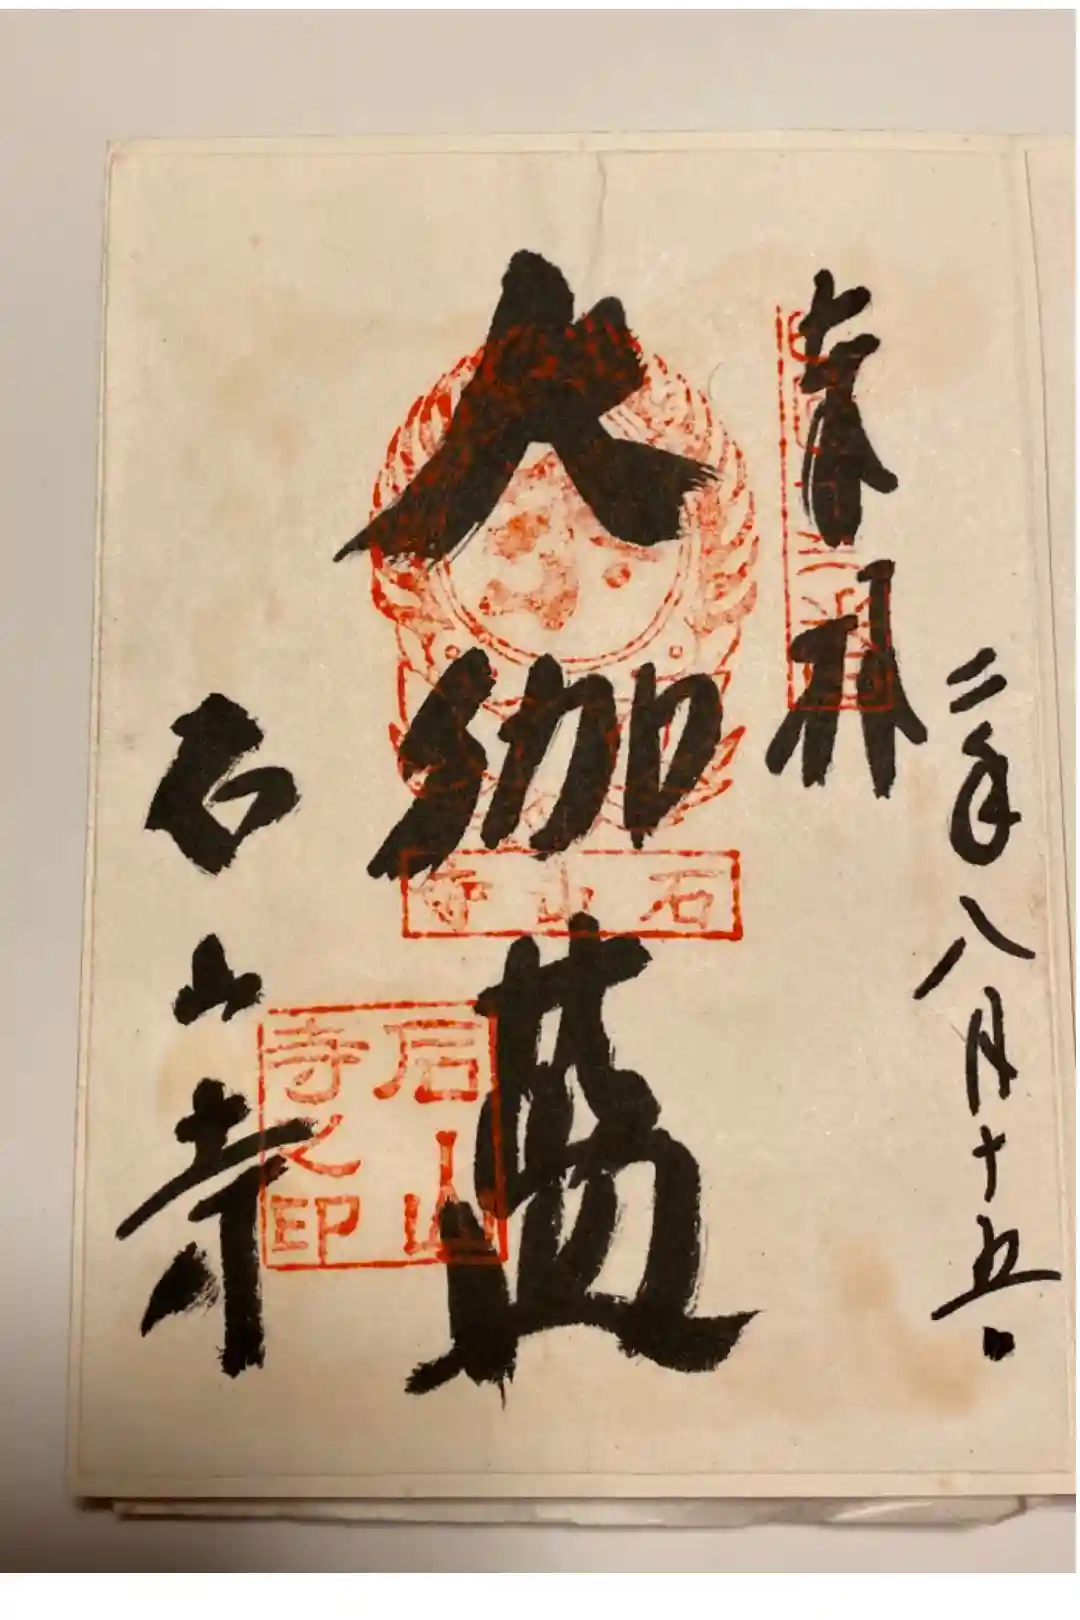 奉拝
二年八月十五日
大伽藍
石山寺
石山寺
石山寺之印